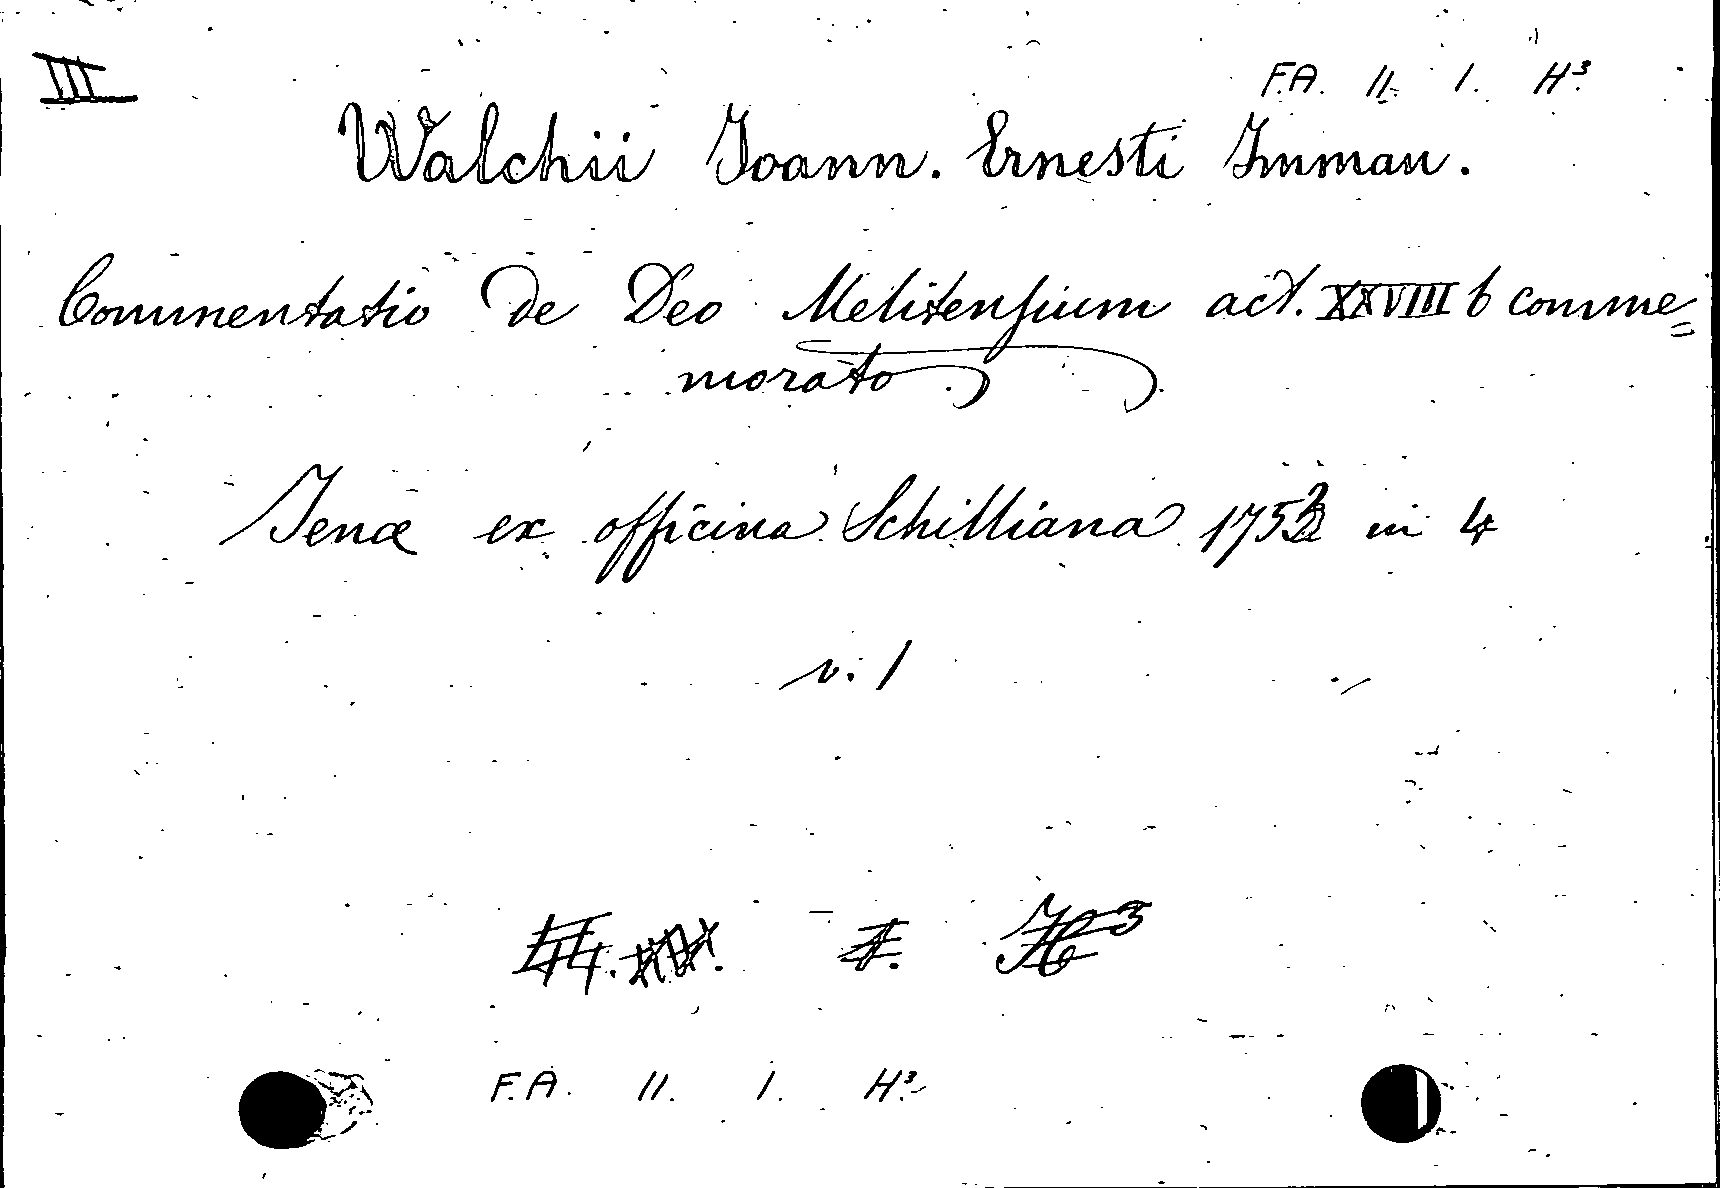 III
F.A. II. I. H³.
Walchii Joann. Ernesti Imman.
Commentatio de Deo Melitensium act. XXVIII 6 comme=
morato
Jenæ ex officina Schilliana in 4
v. 1
H³
F.A. II. I. H³.